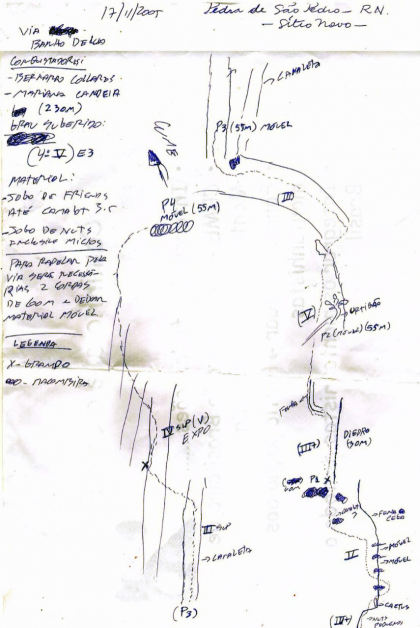 17/11/2005
Pedra de São Pedro - R.N.
- Sítio Novo -
VIA
BANHO DE LUA
CONQUISTADORES:
- BERNARDO COLLARES
- MARIANA CANDEIA
(230M)
GRAU SUGERIDO:
(4º V) E3
MATERIAL:
- JOGO DE FRIENDS
ATÉ CAMALOT 3.5
- JOGO DE NUTS
INCLUSIVE MICROS
PARA RAPELAR PELA
VIA SERÁ NECESSÁ-
RIAS 2 CORDAS
DE 60M E DEIXAR
MATERIAL MÓVEL
LEGENDA
X - GRAMPO
CANALETA
P3 (55M) MÓVEL
III
CUME
P4
MÓVEL (55M)
(V)
P2 (MÓVEL) (55M)
IV SUP (V)
EXPO
X
III SUP
CANALETA
(P3)
(III+)
DIEDRO
(30M)
P1 X
MÓVEL
MÓVEL
IV
CACTUS
(III+)
NUTS
PEQUENOS